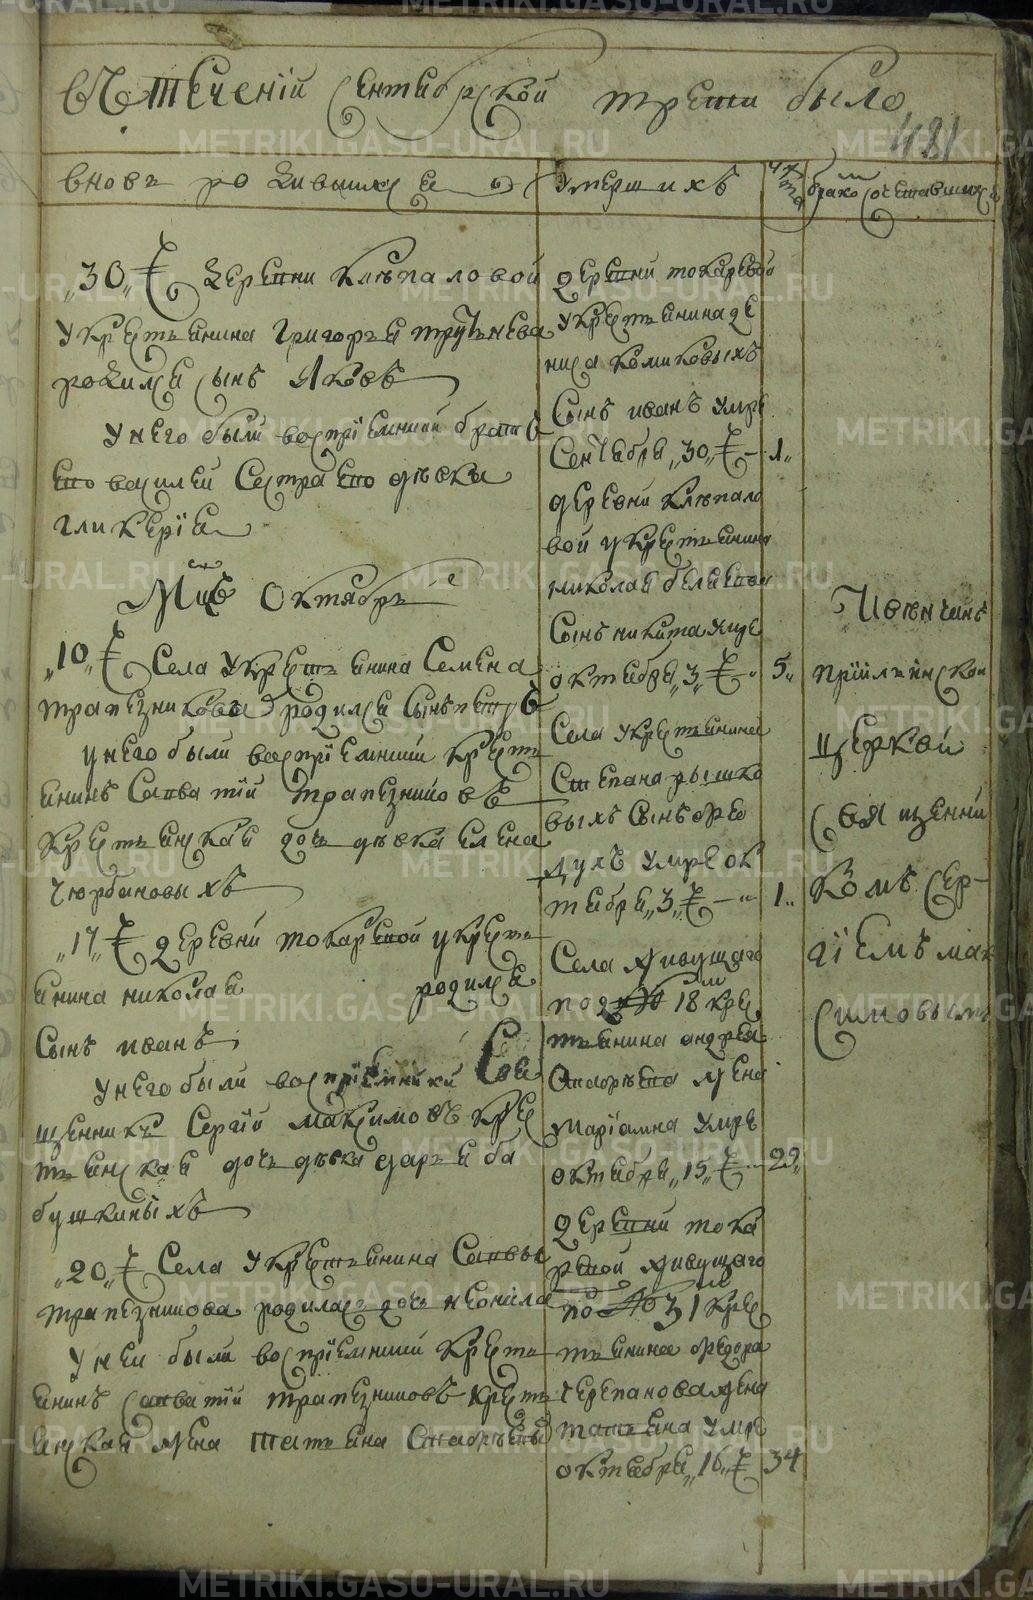 В течении сентябрской трети было
481
вновь родившихся
умерших
бракосочетавшихся
„30„ деревни Клепаловой
у крестьянина Григорья
родился сынъ Яковъ
у него были восприемники братъ
ево василей Сестра ево девка
гликерiя
Мцъ Октябрь
„10„ Села у крестьянина Семена
трапезникова родился Сынъ петръ
у него были восприемники крестья
янинъ Савватiй трапезниковъ
крестьянская дочь девка елена
чюрбановыхъ
„17„ деревни токаревой у крестья
янина николая родился
Сынъ иванъ
у него были восприемники Свя
щенникъ Сергiй максимовъ крес
тьянская дочь девка дарья ба
бушкиныхъ
„20„ Села у крестьянина Саввы
трапезникова родилась дочь неонила
у неи были восприемники крестья
янинъ савватiй трапезниковъ крестья
янская жена татьяна
деревни токаревой
у крестьянина де
ниса комиковыхъ
Сынъ иванъ умре
Сентября „30„ 1„
деревни клепало
вой у крестьянина
николая белаева
Сынъ никита умре
октября „3„ 5„
Села у крестьянина
Степана рышко
выхъ Сынъ фео
духъ умре ок
тября „3„ 1„
Села живущаго
под № 18 крес
тьянина андрея
жена
марiамна умре
октября „15„ 29„
деревни тока
ревой живущаго
по № 31 крес
тьянина федора
черепанова жена
татьяна умре
октября „16„ 34
И венчанъ
церкви
священни
комъ сер-
гiемъ мак
симовымъ
METRIKI.GASO-URAL.RU